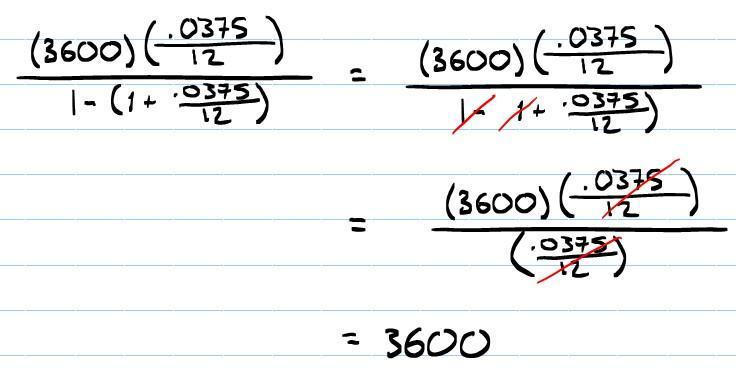 (3600)(.0375/12) / 1-(1+ .0375/12) = (3600)(.0375/12) / 1- 1+ .0375/12)
= (3600)(.0375/12) / (.0375/12)
= 3600